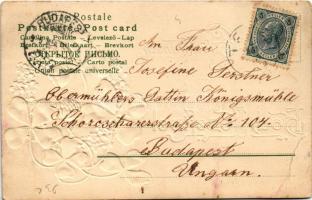 Postale
Postkarte Post card
Cartolina Postale - Levelező-Lap
Brefkort - Briefkaart - Brevkort
ОТКРЫТОЕ ПИСЬМО.
Tarjeta postal Carta postal
Union postale universelle
BUDAPEST
An Frau
Josefine Gerstner
Obermühlers Gattin Königsmühle
Schorocscharerstraße No 104.
Budapest
Ungarn.